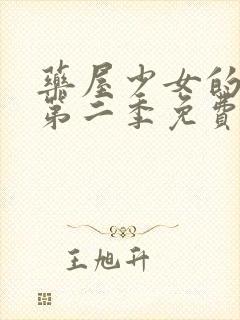 藥屋少女的
第二季免費
王旭升